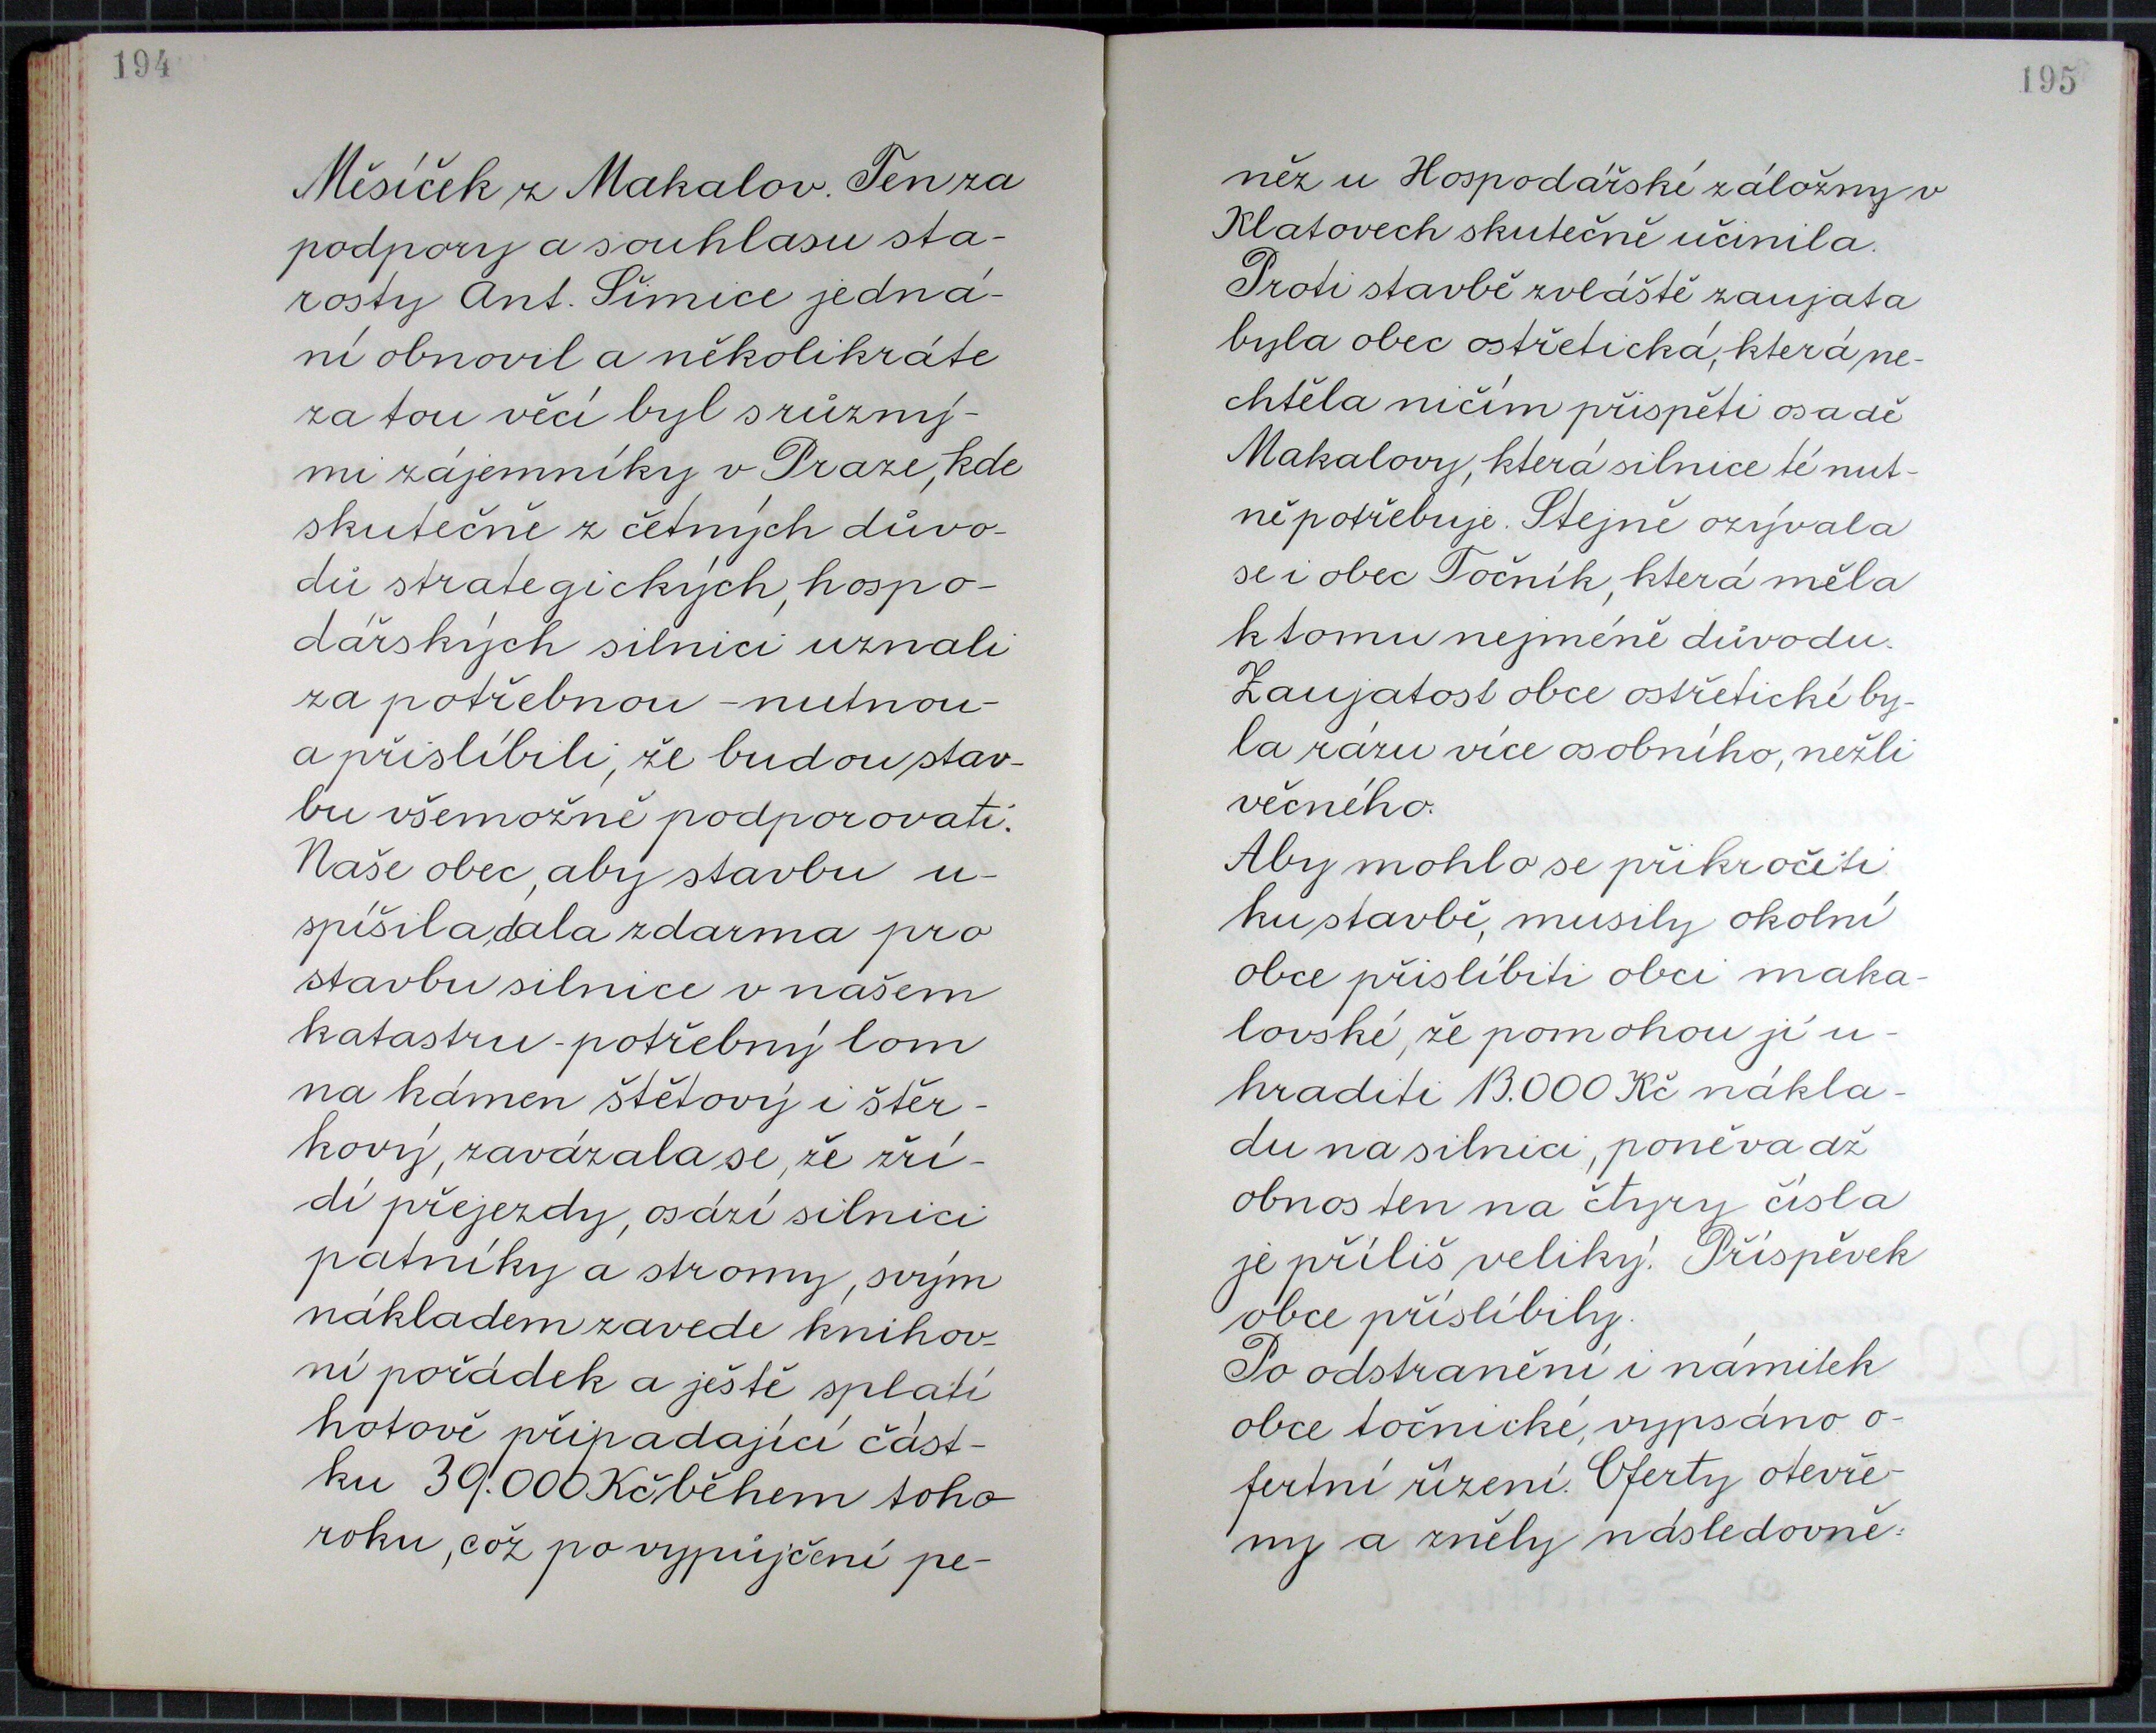 194
Měsíček z Makalov. Ten za
podpory a souhlasu sta-
rosty Ant. Šimice jedná-
ní obnovil a několikráte
za tou věcí byl s různý-
mi zájemníky v Praze, kde
skutečně z četných důvo-
dů strategických, hospo-
dářských silnici uznali
za potřebnou - nutnou -
a přislíbili, že budou stav-
bu všemožně podporovati.
Naše obec, aby stavbu u-
spíšila, dala zdarma pro
stavbu silnice v našem
katastru - potřebný lom
na kámen štětový i štěr-
kový, zavázala se, že zří-
dí přejezdy, osází silnici
patníky a stromy, svým
nákladem zavede knihov-
ní pořádek a ještě splatí
hotově připadající část-
ku 39.000 Kč během toho
roku, což po vypůjčení pe-
195
něz u Hospodářské záložny v
Klatovech skutečně učinila.
Proti stavbě zvláště zaujata
byla obec ostřetická, která ne-
chtěla ničím přispěti osadě
Makalovy, která silnice té nut-
ně potřebuje. Stejně ozývala
se i obec Točník, která měla
k tomu nejméně důvodu.
Zaujatost obce ostřetické by-
la rázu více osobního, nežli
věcného.
Aby mohlo se přikročiti
ku stavbě, musily okolní
obce přislíbiti obci maka-
lovské, že pomohou jí u-
hraditi 13.000 Kč nákla-
du na silnici, poněvadž
obnos ten na čtyry čísla
je příliš veliký. Příspěvek
obce příslíbily.
Po odstranění i námitek
obce točnické, vypsáno o-
fertní řízení. Oferty otevře-
ny a zněly následovně: